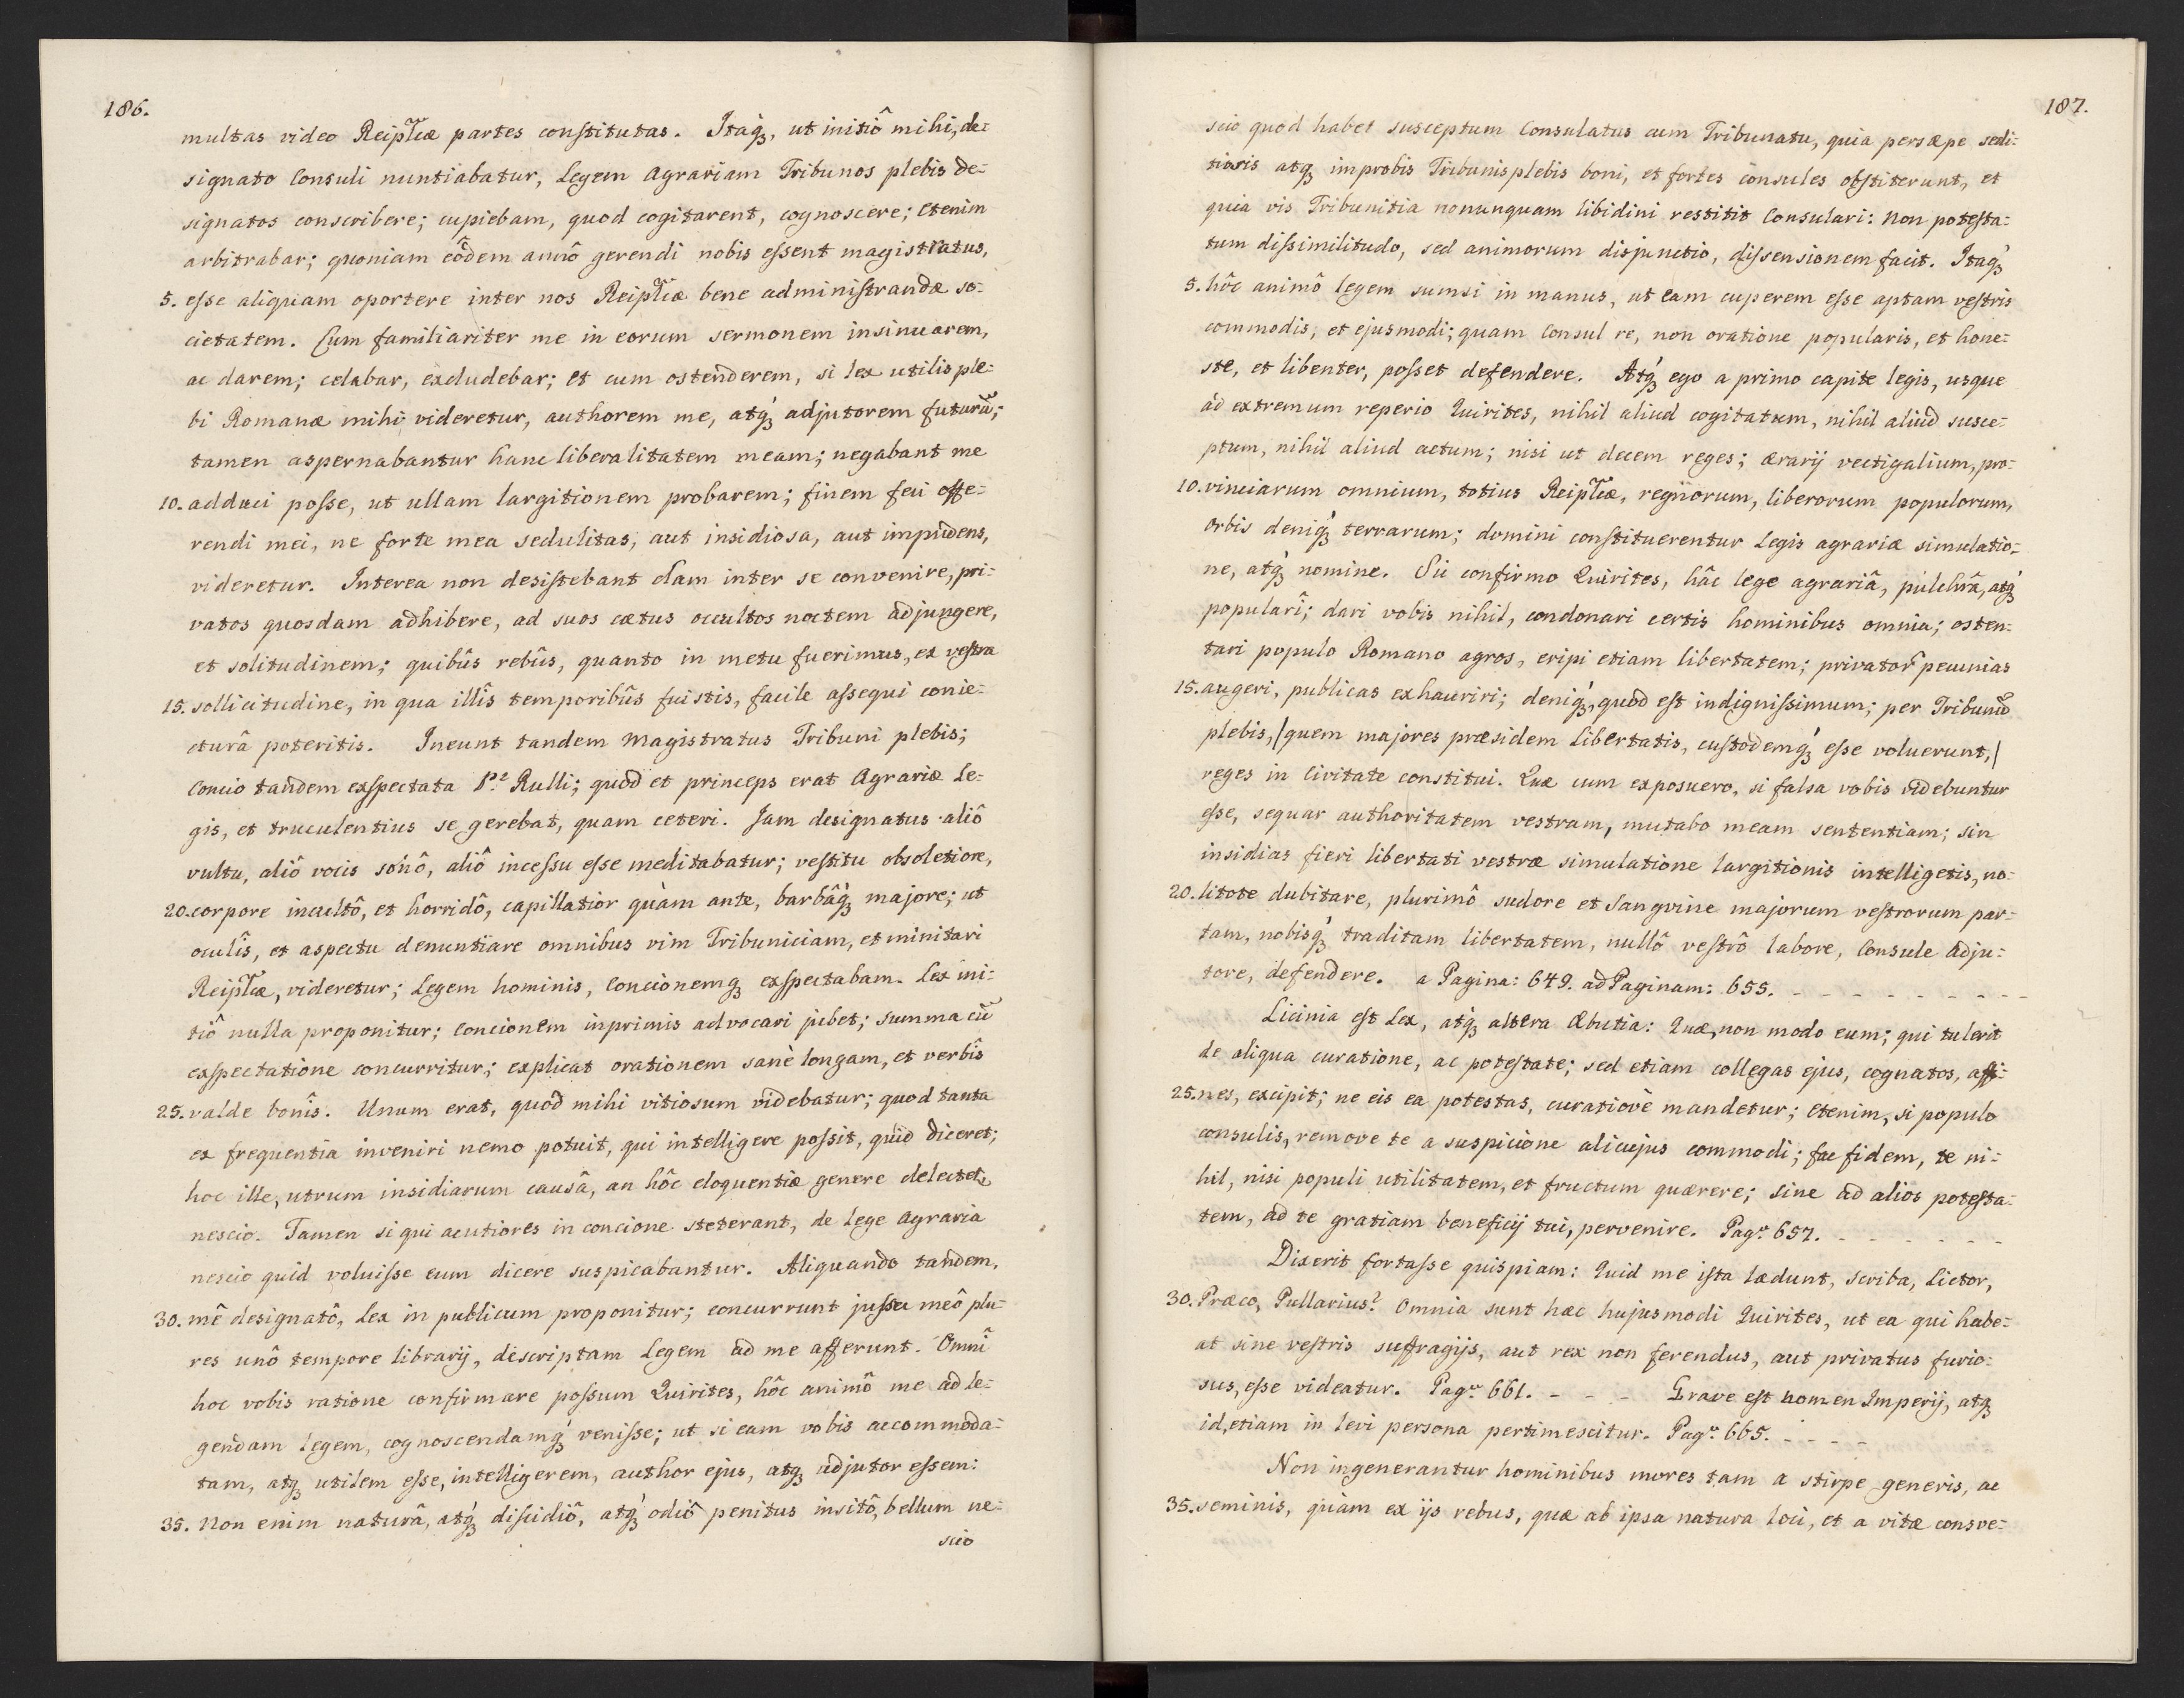 186.
multas video Reipl̃cæ partes constitutas. Itaq́ꝫ, ut initiô mihi, de=
signato Consuli nuntiabatur, Legem Agrariam Tribunos plebis de=
signatos conscribere; cupiebam, quod cogitarent, cognoscere; Etenim
arbitrabar; quoniam eôdem annô gerendi nobis eſsent magistratus,
5. eſse aliquam oportere inter nos Reipl̃cæ bene adminiſtrandæ so=
cietatem. Cum familiariter me in eorum sermonem insinuarem,
ac darem; celabar, excludebar; et cum ostenderem, si lex utilis ple=
bi Romanæ mihi videretur, authorem me, atq́ꝫ adjutorem futurũ;
tamen aspernabantur hanc liberalitatem meam; negabant me
10. adduci poſse, ut ullam largitionem probarem; finem feci offe=
rendi mei, ne forte mea sedulitas, aut insidiosa, aut impudens,
videretur. Interea non desiſtebant clam inter se convenire, pri=
vatos quosdam adhibere, ad suos cætus occultos noctem adjungere,
et solitudinem; quibûs rebûs, quanto in metu fuerimus, ex veſtra
15. sollicitudine, in qua illîs temporibûs fuistis, facile aſsequi conie=
cturâ poteritis. Ineunt tandem Magistratus Tribuni plebis;
Concio tandem exſpectata P.ͤ Rulli; quòd et princeps erat Agrariæ Le=
gis, et truculentius se gerebat, quam ceteri. Jam designatus aliô
vultu, aliô vocis sonô, aliô inceſsu eſse meditabatur; veſtitu obsoletiore,
20. corpore incultô, et horridô, capillatior quàm ante, barbâq́ꝫ majore; ut
oculîs, et aspectu denuntiare omnibus vim Tribuniciam, et minitari
Reipl̃cæ, videretur; Legem hominis, Concionemqꝫ exſpectabam. Lex ini=
tiô nulla proponitur; Concionem inprimis advocari jubet; summa cũ
exſpectatione concurritur; explicat orationem sanè longam, et verbîs
25. valde bonîs. Unum erat, quòd mihi vitiosum videbatur; quod tanta
ex frequentia inveniri nemo potuit, qui intelligere poſsit, quid diceret;
hoc ille, utrum insidiarum causâ, an hôc eloquentiæ genere delectet,
nescio. Tamen si qui acutiores in concione steterant, de lege Agraria
nescio quid voluiſse eum dicere suspicabantur. Aliquando tandem,
30. mê designatô, Lex in publicum proponitur; concurrunt juſsu meô plu=
res unô tempore librarij, descriptam Legem ad me afferunt. Omni
hoc vobis ratione confirmare poſsum Quirites, hôc animô me ad le=
gendam Legem, cognoscendamq́ꝫ veniſse; ut si eam vobis accommoda=
tam, atqꝫ utilem eſse, intelligerem, author ejus, atqꝫ adjutor eſsem:
35. Non enim naturâ, atq́ꝫ discidiô, atq́ꝫ odiô penitus insitô, bellum ne=
scio
187.
scio quod habet susceptum Consulatus cum Tribunatu, quia persæpe sedi=
tiosis atqꝫ improbis Tribunis plebis boni, et fortes consules obſtiterunt, et
quia vis Tribunitia nonunquam libidini restitit Consulari: Non poteſta=
tum diſsimilitudo, sed animorum disjunctio, diſsensionem facit. Itaq́ꝫ
5. hôc animô legem sumsi in manus, ut eam cuperem eſse aptam veſtris
commodis; et ejusmodi; quam Consul re, non oratione popularis, et hone=
ste, et libenter, poſset defendere. Atq́ꝫ ego a primo capite legis, usque
ad extremum reperio Quirites, nihil aliud cogitatum, nihil aliud susce=
ptum, nihil aliud actum; nisi ut decem reges; ærarij vectigalium, pro=
10. vinciarum omnium, totius Reipl̃cæ, regnorum, liberorum populorum,
orbis deniq́ꝫ terrarum; domini conſtituerentur Legis agrariæ simulatio=
ne, atq́ꝫ nomine. Sic confirmo Quirites, hâc lege agrariâ, pulchrâ, atq́ꝫ
popularî; dari vobis nihil, condonari certis hominibus omnia; osten=
tari populo Romano agros, eripi etiam libertatem; privator̃ pecunias
15. augeri, publicas exhauriri; deniq́ꝫ, quòd eſt indigniſsimum; per Tribunũ
plebis, /quem majores præsidem libertatis, custodemq́ꝫ eſse voluerunt,/
reges in Civitate constitui. Quæ cum exposuero, si falsa vobis videbuntur
eſse, sequar authoritatem vestram, mutabo meam sententiam; sin
insidias fieri libertati vestræ simulatione largitionis intelligetis, no=
20. litote dubitare, plurimô sudore et Sangvine majorum veſtrorum par=
tam, nobisq́ꝫ traditam libertatem, nullô veſtrô labore, Consule adju=
tore, defendere. a Pagina: 649. ad Paginam: 655. - - - - - - - - -
Licinia eſt Lex, atq́ꝫ altera Æbutia: Quæ, non modo eum; qui tulerit
de aliqua curatione, ac poteſtate; sed etiam collegas ejus, cognatos, affi=
25. nes, excipit; ne eis ea potestas, curatiove mandetur; Etenim, si populo
consulis, remove te a suspicione alicujus commodi; fac fidem, te ni=
hil, nisi populi utilitatem, et fructum quærere; sine ad alios poteſta=
tem, ad te gratiam beneficij tui, pervenire. Pag.ͣ 657. - - - - - -
Dixerit fortaſse quispiam: Quid me iſta lædunt, scriba, Lictor,
30. Præco, Pullarius? Omnia sunt hæc hujusmodi Quirites, ut ea qui habe=
at sine veſtris suffragijs, aut rex non ferendus, aut privatus furio=
sus, eſse videatur. Pag.ͣ 661. - - - Grave eſt nomen Imperij, atqꝫ
id, etiam in levi persona pertimescitur. Pag.ͣ 665. - - - -
Non ingenerantur hominibus mores tam a stirpe generis, ac
35. seminis, quàm ex ijs rebus, quæ ab ipsa natura loci, et a vitæ consve=